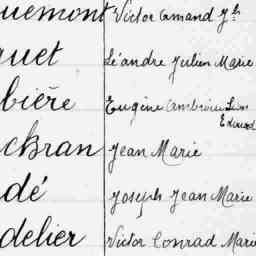 uemont Victor Amand Jh
quet Léandre Julien Marie
bière Eugène Ambroise Léon
Edouard
ckran Jean Marie
dé Joseph Jean Marie
delier Victor Conrad Marie